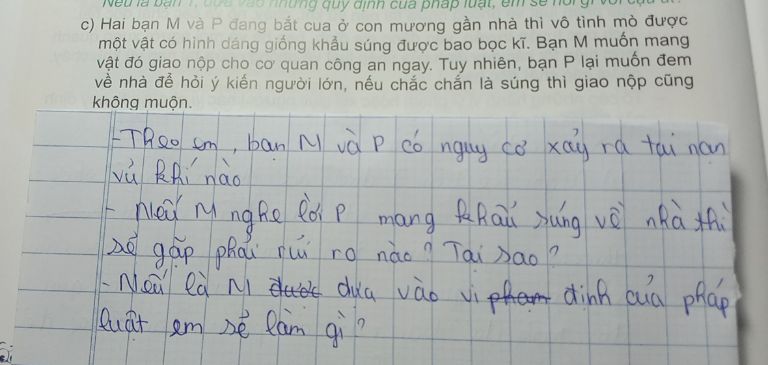 c) Hai bạn M và P đang bắt cua ở con mương gần nhà thì vô tình mò được
một vật có hình dáng giống khẩu súng được bao bọc kĩ. Bạn M muốn mang
vật đó giao nộp cho cơ quan công an ngay. Tuy nhiên, bạn P lại muốn đem
về nhà để hỏi ý kiến người lớn, nếu chắc chắn là súng thì giao nộp cũng
không muộn.
- Theo em, bạn M và P có nguy cơ xảy ra tai nạn
vũ khí nào
- Nếu M nghe lời P mang khẩu súng về nhà thì
sẽ gặp phải rủi ro nào? Tại sao?
- Nếu là M được dựa vào vi phạm định của pháp
luật em sẽ làm gì?